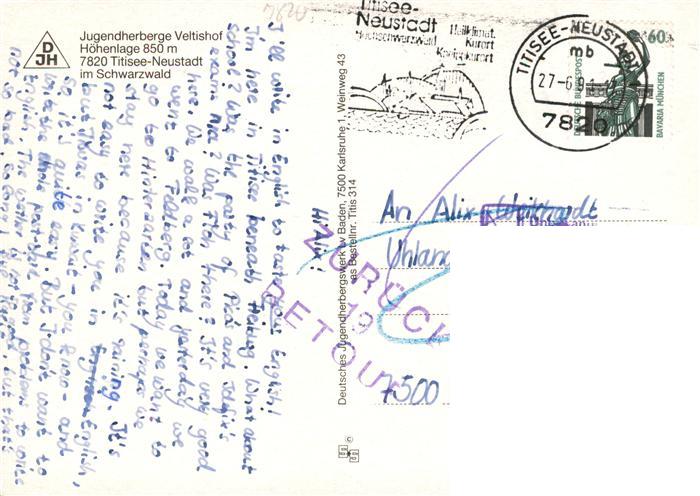 Jugendherberge Veltishof
Höhenlage 850 m
7820 Titisee-Neustadt
im Schwarzwald
DJH
7820
Titisee-
Neustadt
Hochschwarzwald
Heilklimat.
Kurort
Kneippkurort
TITISEE-NEUSTADT
mb
27-6.9
7820
60
DEUTSCHE BUNDESPOST
BAVARIA MÜNCHEN
An Alix
Uhland
7500
ZURÜCK
RETOUR
Deutsches Jugendherbergswerk LV Baden, 7500 Karlsruhe 1, Weinweg 43
Bestellnr. Titis 314
Hi Alix!
I'll write in English to test your English!
I'm here in Titisee beneath Freiburg. What about
school? Was the party of Pleas and Sofie's
exam nice? Was Tom there? It's very good
here. We walk a lot and yesterday we
went to Feldberg. Today we want to
go to Hinterzarten but perhaps we
stay here because it's raining. It's
not easy to write you in English,
but Thomas in Kenia - you know - and
he it's quite easy. But I don't want to
write the whole post-card from German to
English. The weather is
not so bad